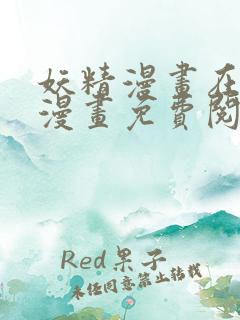 妖精漫畫在
漫畫免費閱
Red果子
未任同意禁止轉載